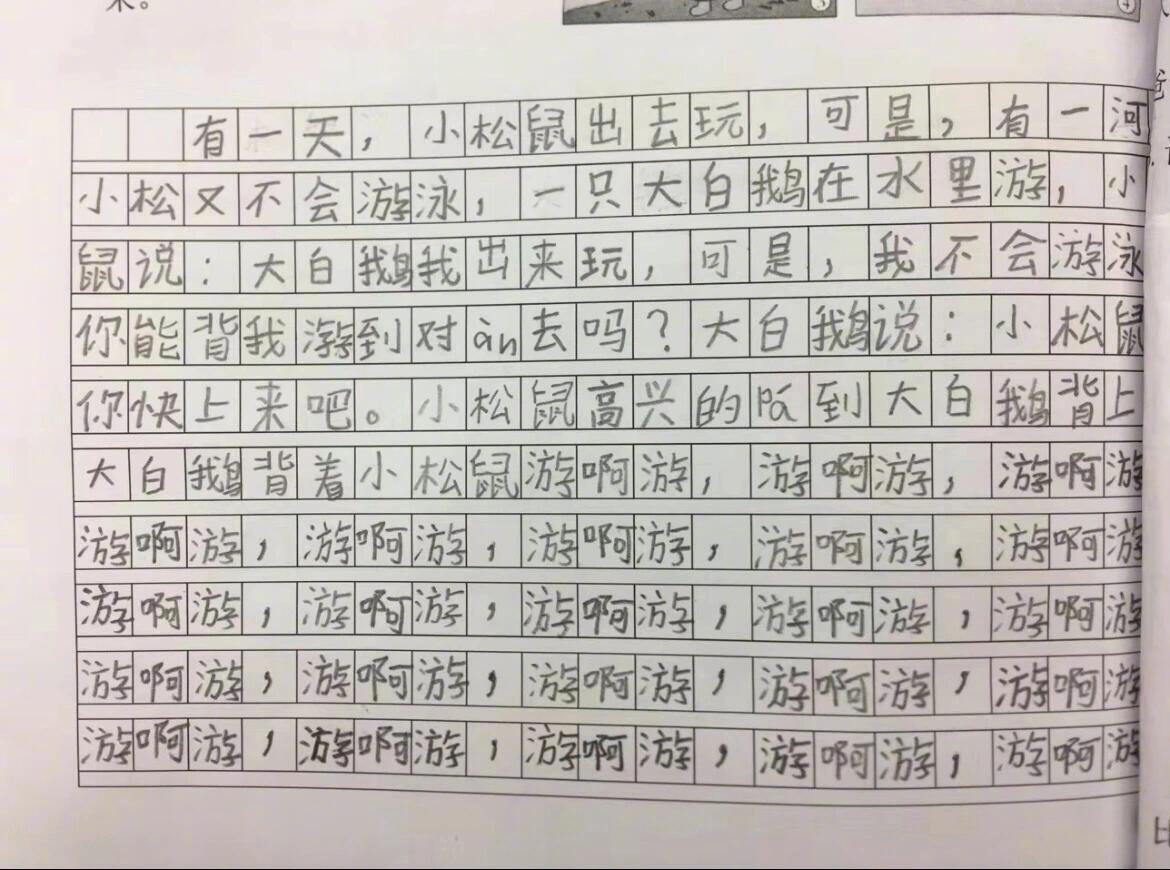 末。
有一天，小松鼠出去玩，可是，有一河
小松又不会游泳，一只大白鹅在水里游，小
鼠说：大白鹅我出来玩，可是，我不会游泳
你能背我游到对àn去吗？大白鹅说：小松鼠
你快上来吧。小松鼠高兴的pá到大白鹅背上
大白鹅背着小松鼠游啊游，游啊游，游啊游
游啊游，游啊游，游啊游，游啊游，游啊游
游啊游，游啊游，游啊游，游啊游，游啊游
游啊游，游啊游，游啊游，游啊游，游啊游
游啊游，游啊游，游啊游，游啊游，游啊游